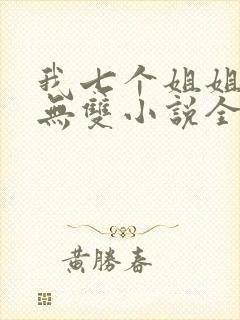 我七个姐姐
無雙小説全
黃勝春